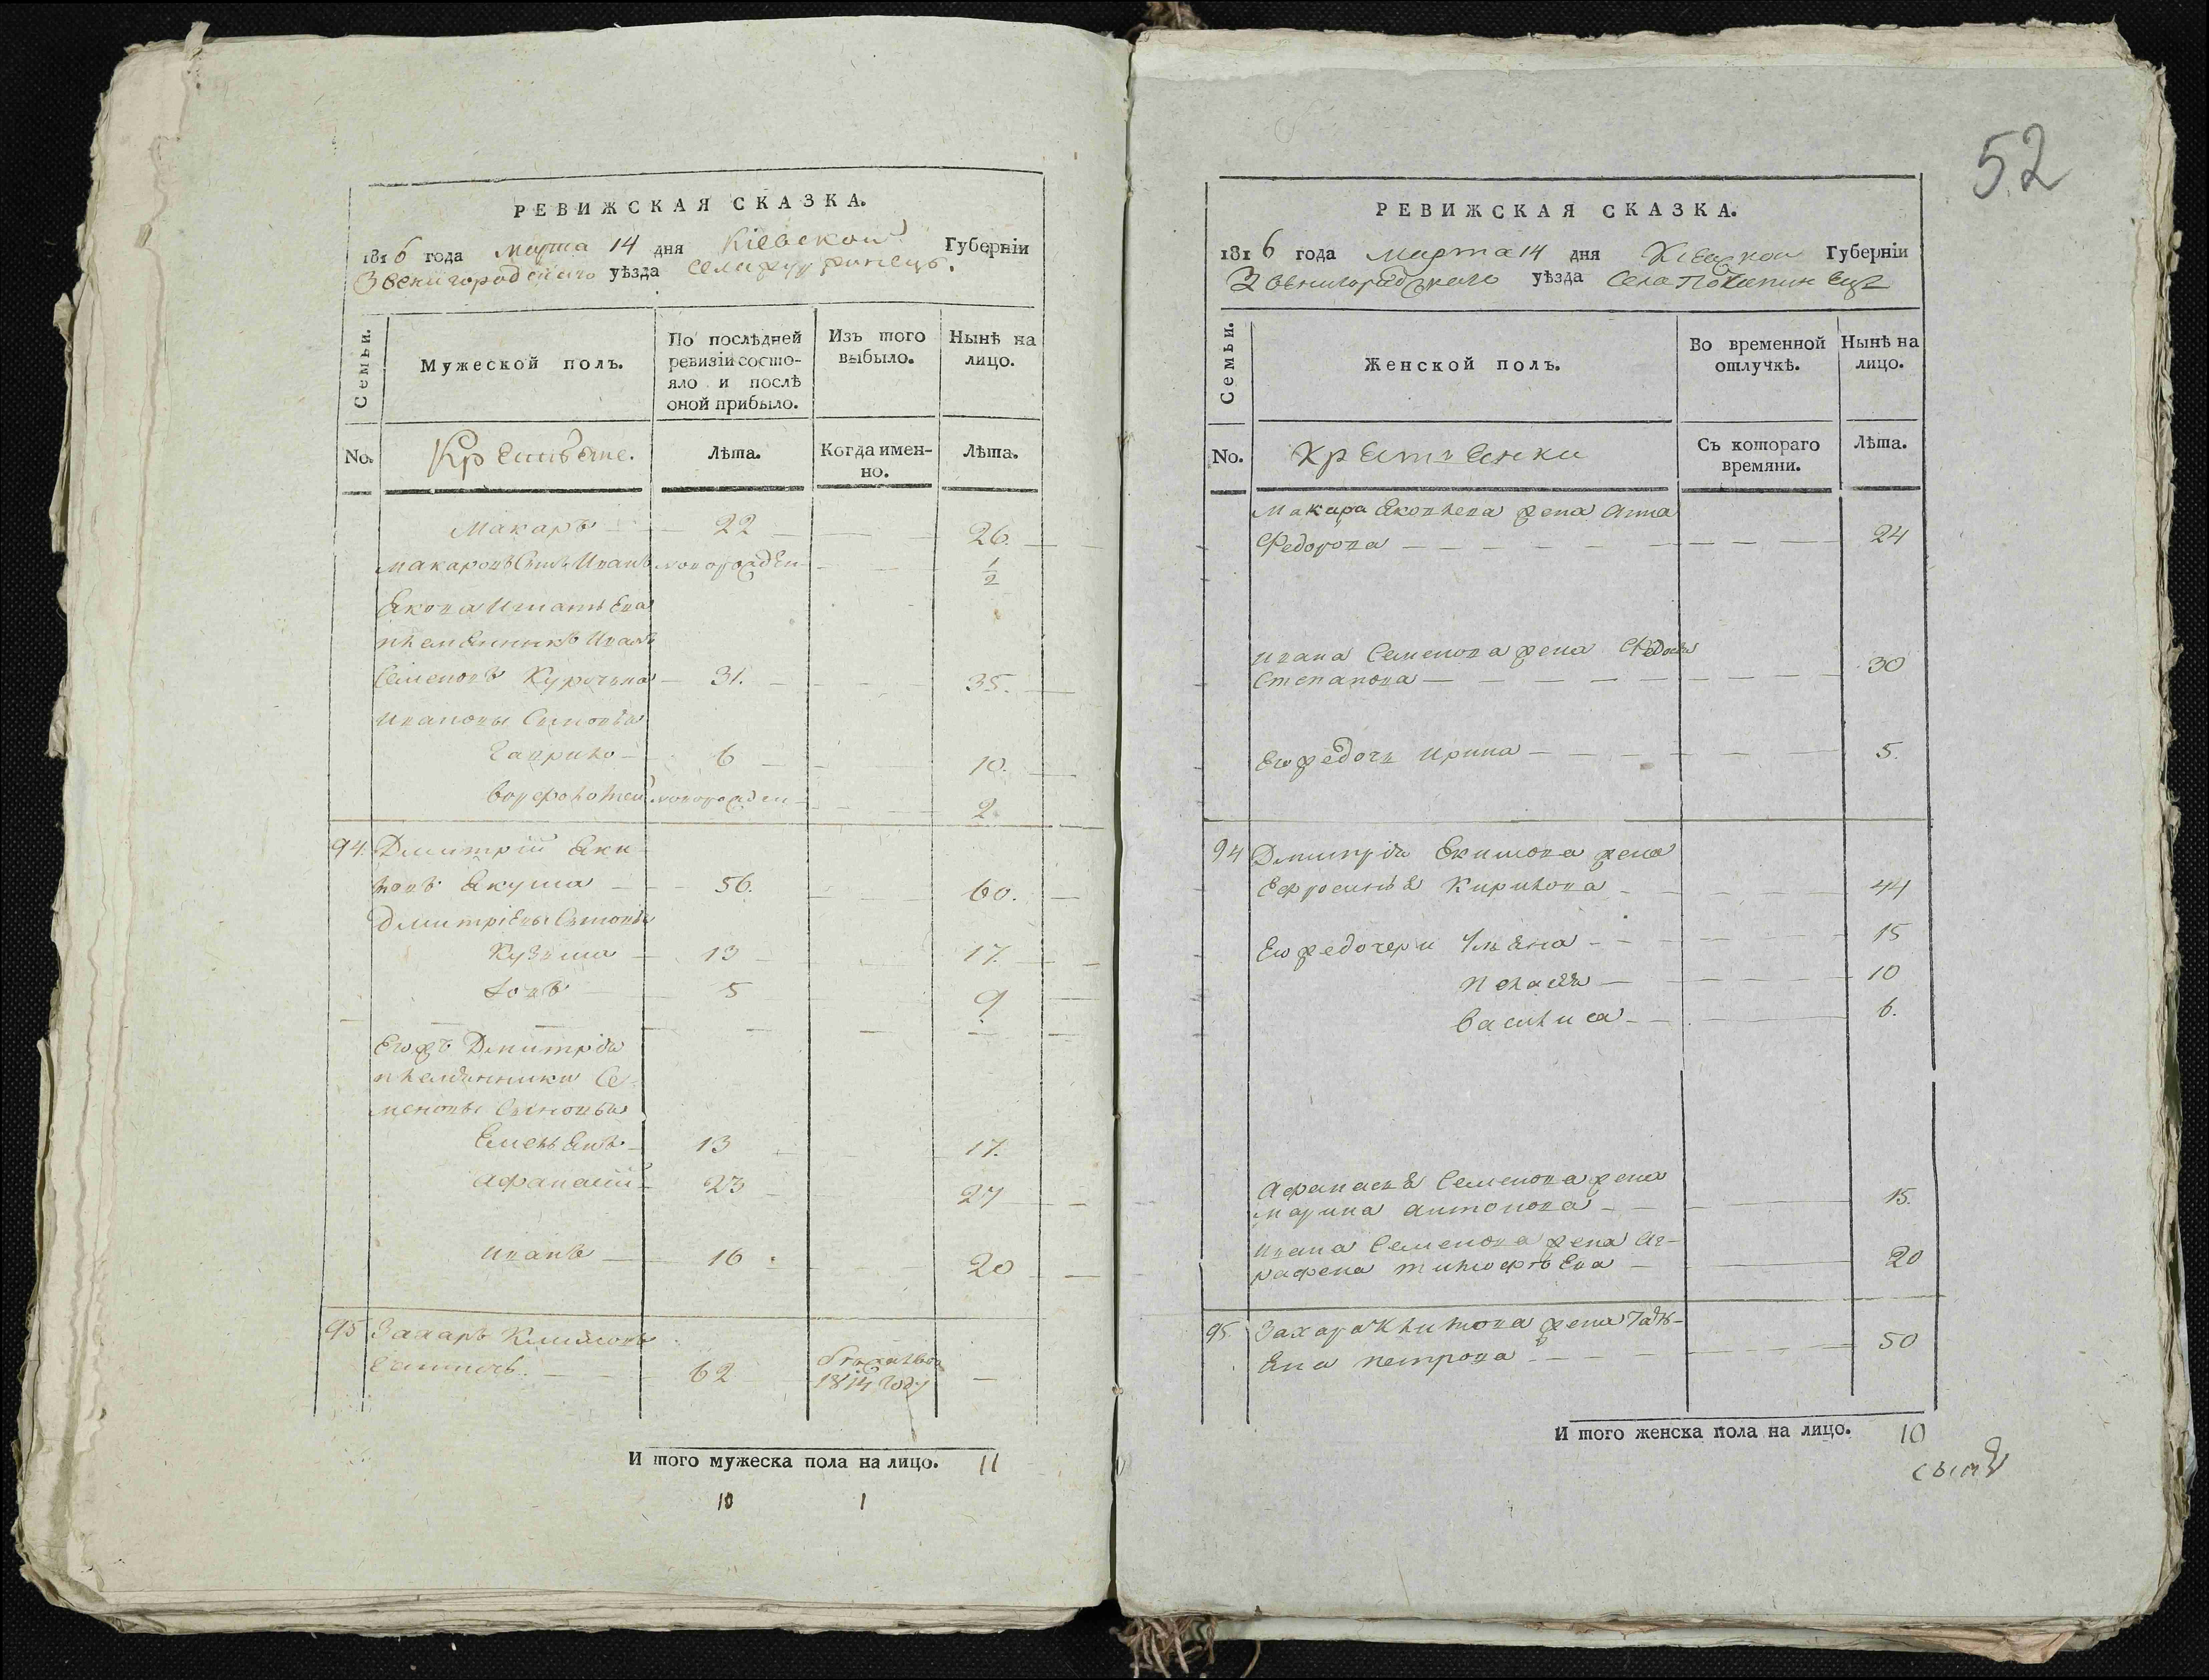 52
РЕВИЖСКАЯ СКАЗКА.
1816 года марта 14 дня Кіевской Губерніи
Звенигородскаго уѣзда села
Семьи.
Мужеской полъ.
По послѣдней ревизіи состояло и послѣ оной прибыло.
Изъ того выбыло.
Нынѣ на лицо.
No.
Крестьяне.
Лѣта.
Когда именно.
Лѣта.
Макаръ 22 26.
Макаровъ Сынъ Иванъ новорожден 1/2
Якова Игнатьева
племянникъ Иванъ
Семеновъ 31. 35.
Ивановы Сыновья
Гаврило 6 10.
Ворфоломей новорожден 2
94. Дмитрий Яки
мовъ Якуша 56. 60.
Дмитріевы Сыновья
Кузьма 13 17.
Іовъ 5 9
Егожъ Дмитрія
племянники Се
меновы Сыновья
Емельянъ 13 17.
Афанасій 23 27
Иванъ 16 20
95 Захаръ Климовъ
62 1814 году —
И того мужеска пола на лицо. 11
10 1
РЕВИЖСКАЯ СКАЗКА.
1816 года марта 14 дня Кіевской Губерніи
Звенигородскаго уѣзда Села
Семьи.
Женской полъ.
Во временной отлучкѣ.
Нынѣ на лицо.
No.
Крестьянки
Съ котораго времяни.
Лѣта.
Макара Яковлева жена Анна
Федорова 24
Ивана Семенова жена
Степанова 30
Егожедочь Ирина 5.
94 Дмитрія Екимова жена
Ефросинья Кирилова 44
Егожедочери Ульяна 15
Пелагія 10
Василиса 6.
Афанасья Семенова жена
Марина Антонова 15.
Ивана Семенова жена Аг-
рафена Тимофѣева 20
95. Захара Климова жена
Петрова 50
И того женска пола на лицо. 10